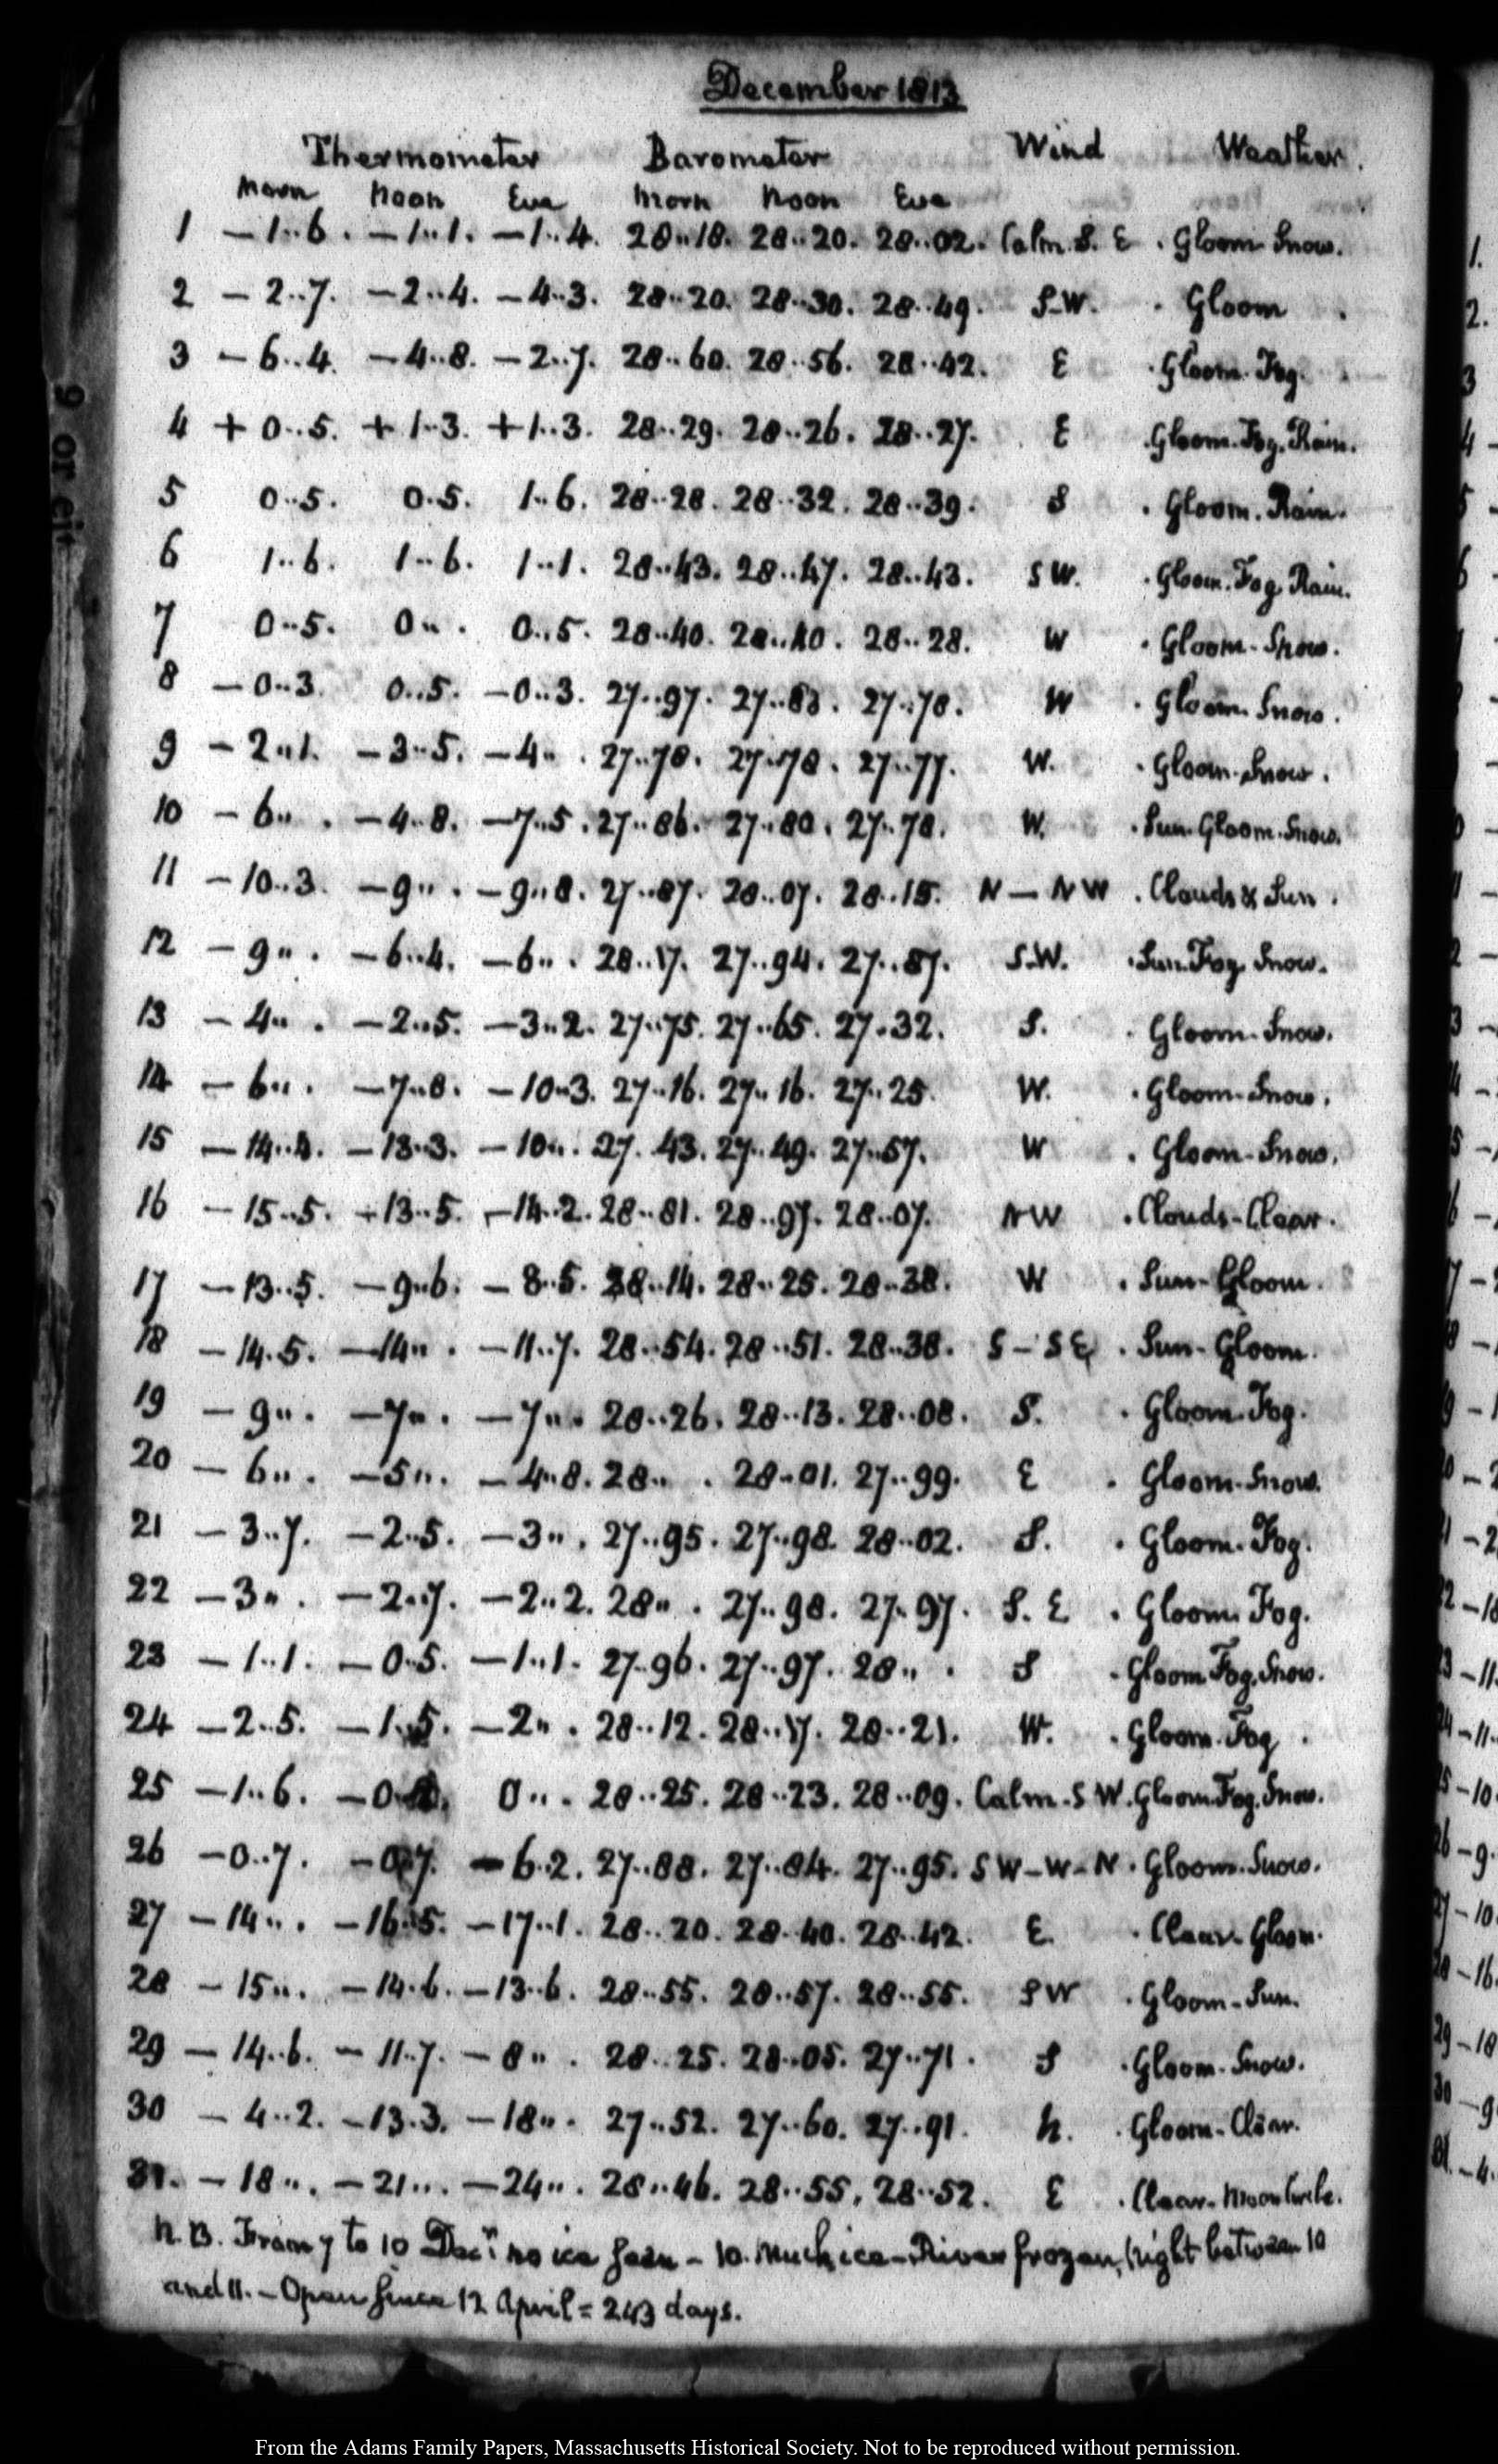 December 1813
Thermometer Barometer Wind Weather.
Morn Noon Eve Morn Noon Eve
1 —1..6. —1..1. —1..4. 28..18. 28..20. 28..02. Calm. S. E. Gloom Snow.
2 —2..7. —2..4. —4..3. 28..20. 28..30. 28..49. S.W. Gloom.
3 —6..4. —4..8. —2..7. 28..60. 28..56. 28..42. E Gloom. Fog.
4 +0..5. +1..3. +1..3. 28..29. 28..26. 28..27. E Gloom. Fog. Rain.
5 0..5. 0..5. 1..6. 28..28. 28..32. 28..39. S Gloom. Rain.
6 1..6. 1..6. 1..1. 28..43. 28..47. 28..43. S W. Gloom. Fog. Rain.
7 0..5. 0.. . 0..5. 28..40. 28..40. 28..28. W Gloom. Snow.
8 —0..3. 0..5. —0..3. 27..97. 27..83. 27..78. W Gloom. Snow.
9 —2..1. —3..5. —4.. . 27..78. 27..78. 27..77. W. Gloom. Snow.
10 —6.. . —4..8. —7..5. 27..86. 27..80. 27..78. W. Sun. Gloom. Snow.
11 —10..3. —9.. . —9..8. 27..87. 28..07. 28..15. N — N W. Clouds & Sun.
12 —9.. . —6..4. —6.. . 28..17. 27..94. 27..87. S.W. Sun. Fog. Snow.
13 —4.. . —2..5. —3..2. 27..75. 27..65. 27..32. S. Gloom. Snow.
14 —6.. . —7..8. —10..3. 27..16. 27..16. 27..25. W. Gloom. Snow.
15 —14..4. —13..3. —10.. . 27..43. 27..49. 27..57. W Gloom. Snow.
16 —15..5. —13..5. —14..2. 28..81. 28..97. 28..07. N W Clouds - Clear.
17 —13..5. —9..6. —8..5. 28..14. 28..25. 28..38. W Sun - Gloom.
18 —14..5. —14.. . —11..7. 28..54. 28..51. 28..38. S - S E. Sun - Gloom.
19 —9.. . —7.. . —7.. . 28..26. 28..13. 28..08. S. Gloom. Fog.
20 —6.. . —5.. . —4..8. 28.. . 28..01. 27..99. E Gloom. Snow.
21 —3..7. —2..5. —3.. . 27..95. 27..98. 28..02. S. Gloom. Fog.
22 —3.. . —2..7. —2..2. 28.. . 27..98. 27..97. S. E. Gloom. Fog.
23 —1..1. —0..5. —1..1. 27..96. 27..97. 28.. . S Gloom Fog. Snow.
24 —2..5. —1..5. —2.. . 28..12. 28..17. 28..21. W. Gloom. Fog.
25 —1..6. 0.. . 28..25. 28..23. 28..09. Calm. S W. Gloom Fog. Snow.
26 —0..7. —0..7. —6..2. 27..88. 27..84. 27..95. S W - W - N. Gloom. Snow.
27 —14.. . —16..5. —17..1. 28..20. 28..40. 28..42. E. Clear. Gloom.
28 —15.. . —14..6. —13..6. 28..55. 28..57. 28..55. S W Gloom - Sun.
29 —14..6. —11..7. —8.. . 28..25. 28..05. 27..71. S Gloom. Snow.
30 —4..2. —13..3. —18.. . 27..52. 27..60. 27..91. N. Gloom - Clear.
31. —18.. . —21.. . —24.. . 28..46. 28..55. 28..52. E Clear. Moon Circle.
N.B. From 7 to 10 Decr. no ice seen - 10. Much ice - River frozen, (night between 10
and 11. - Open since 12 April = 243 days.
From the Adams Family Papers, Massachusetts Historical Society. Not to be reproduced without permission.